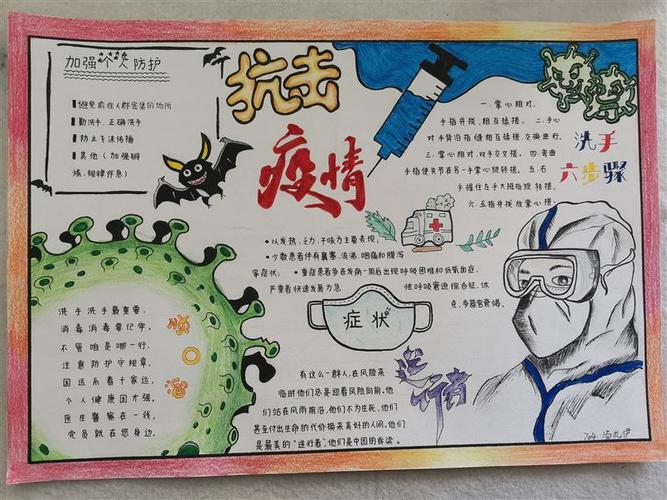 加强个人防护
避免前往人群密集的场所
勤洗手、正确洗手
防止飞沫传播
其他(加强锻
炼、规律作息)
抗击
疫情
一、掌心相对,
手指并拢,相互揉搓。二、手心
对手背沿指缝相互揉搓,交换进行,
三、掌心相对,双手交叉搓。四、弯曲
手指使关节在另一手掌心旋转搓,五、右
手握住左手大拇指旋转搓,
六、五指并拢放掌心搓。
洗手
六步骤
•以发热、乏力、干咳为主要表现,
•少数患者伴有鼻塞、流涕、咽痛和腹泻
等症状:•重症患者多在发病一周后出现呼吸困难和低氧血症,
严重者快速发展为急
性呼吸窘迫综合征、休
克、多器官衰竭。
症状
顺口溜
洗手洗手最重要,
消毒消毒要记牢。
不管咱是哪一行,
注意防护守规章。
国运系着千家运,
个人健康国才强。
医生警察在一线,
党员就在您身边。
逆行者
有这么一群人,在风险来
临时他们总是迎着风险向前,他
们站在风雨前沿,他们不为生死,他们
甚至付出生命的代价换来美好的人间,他们
是最美的“逆行者”,他们是中国的脊梁。
704